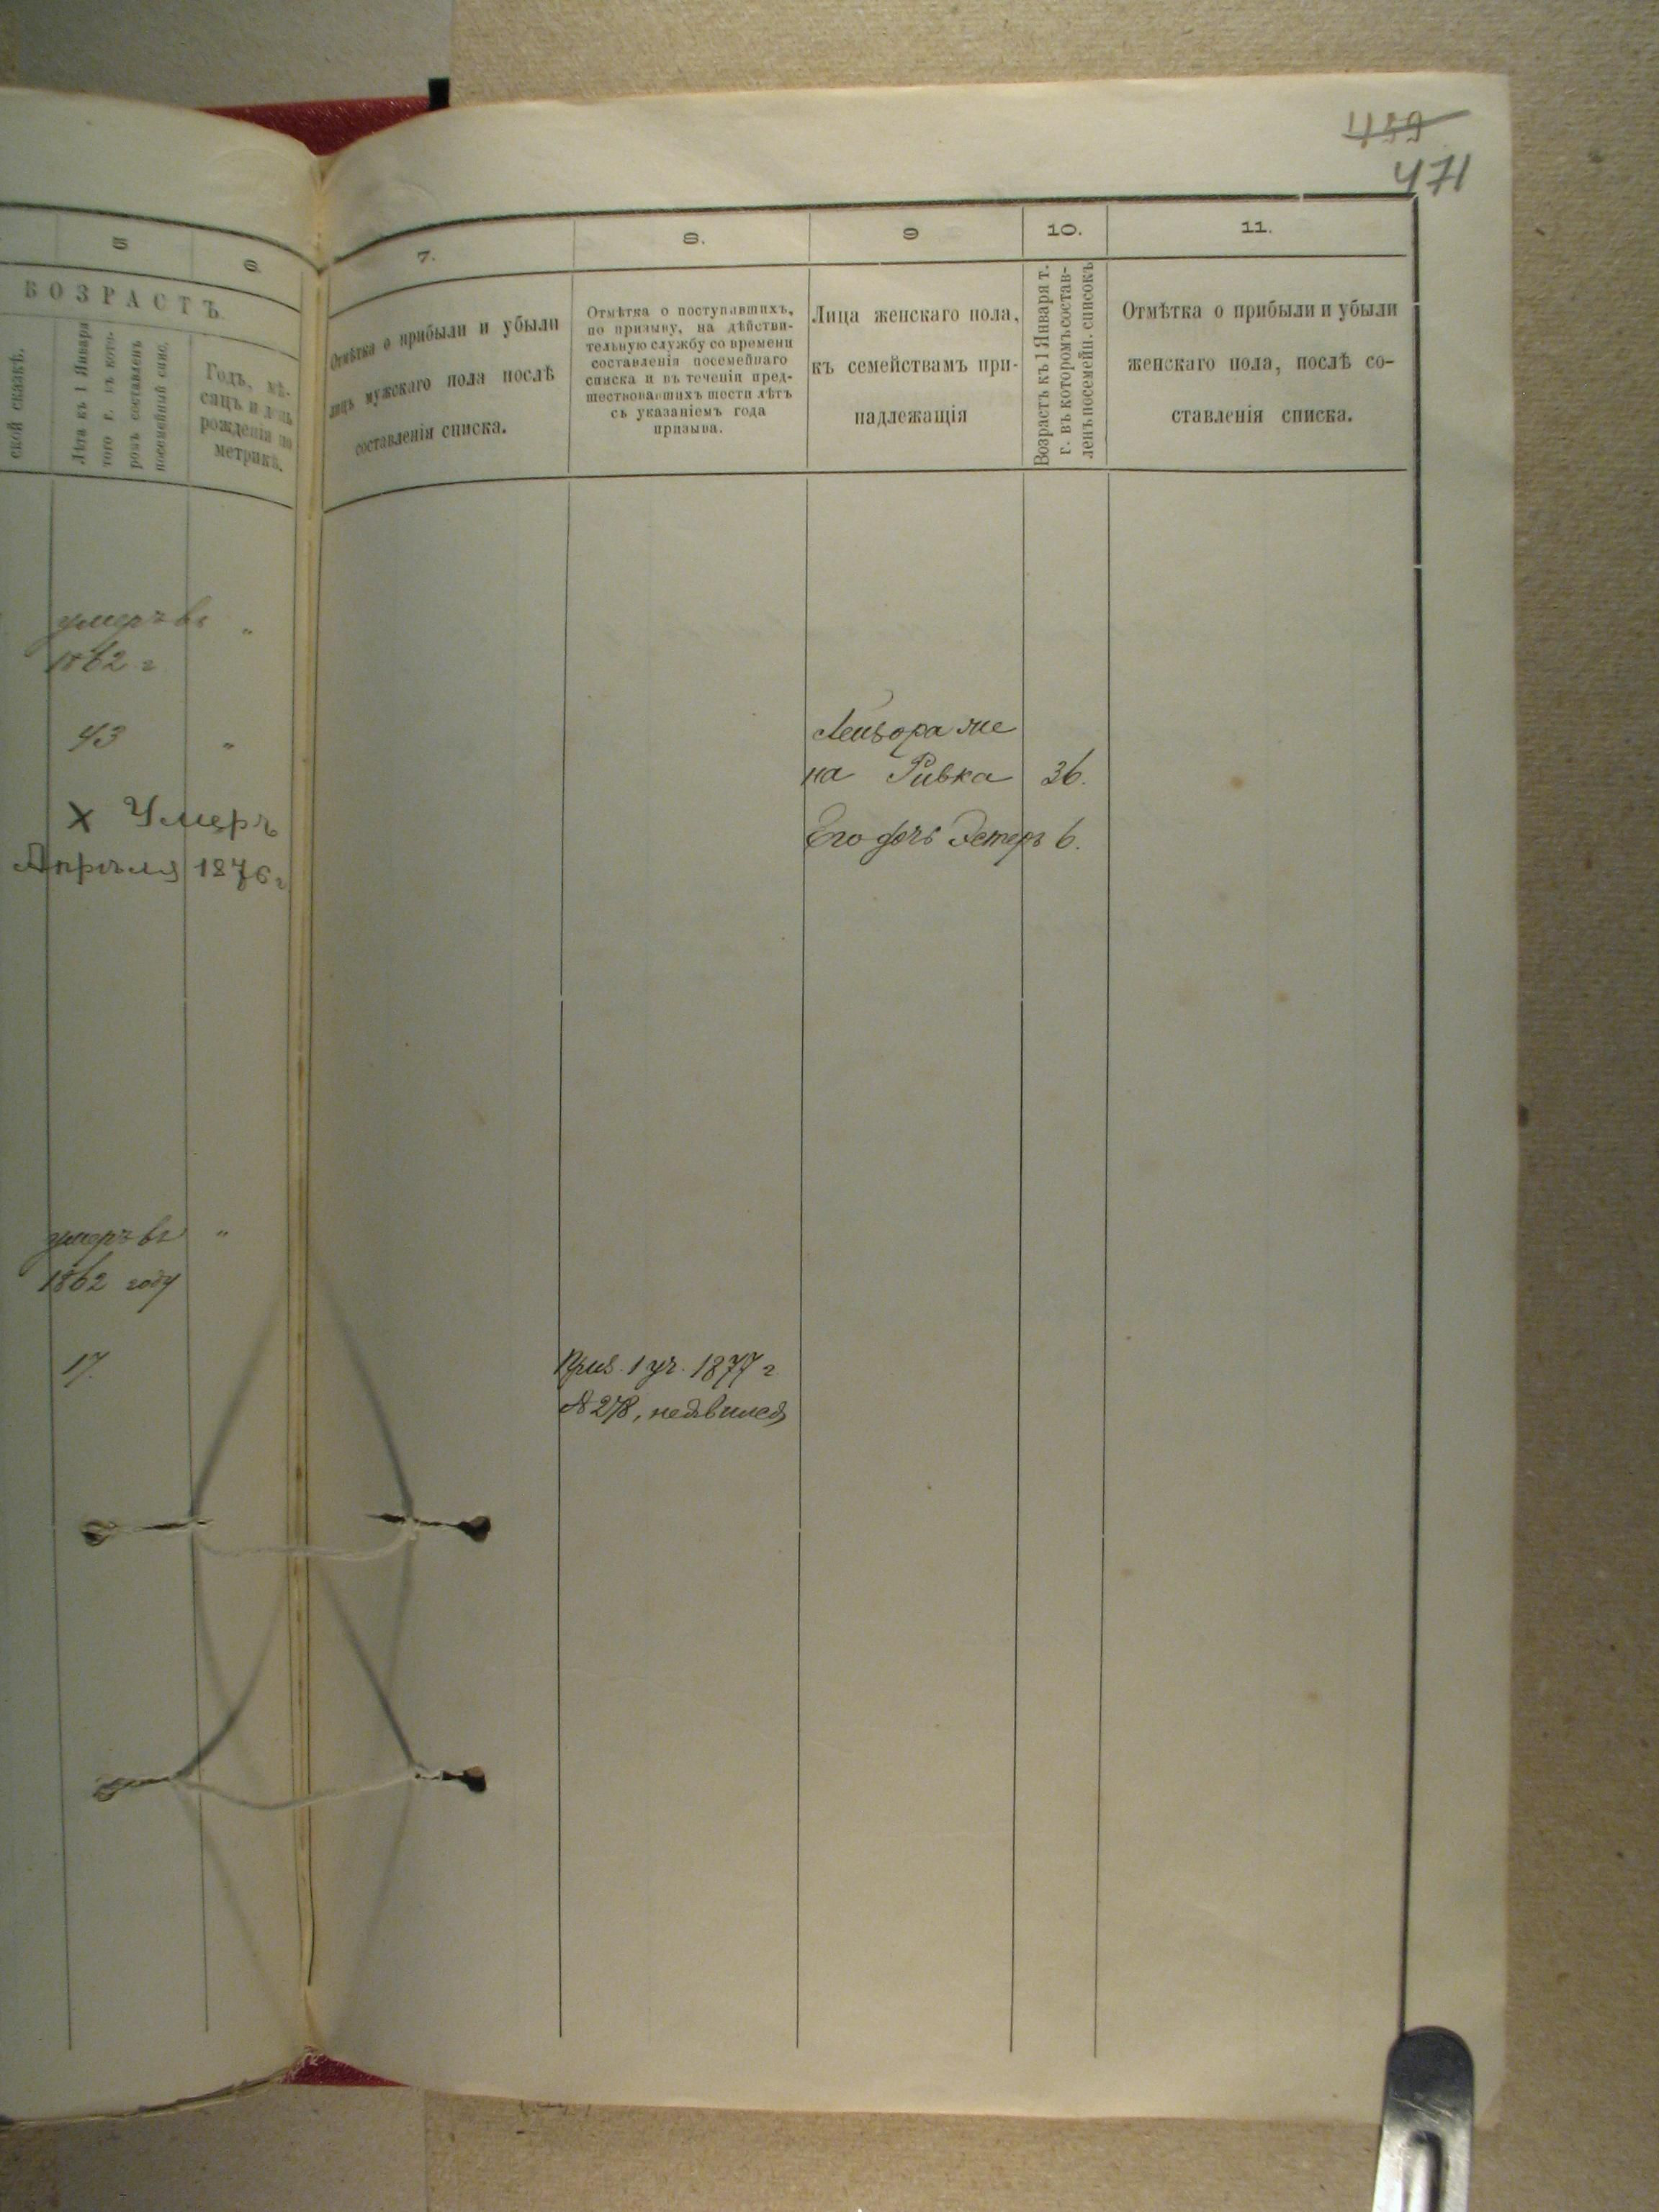 499
471
5
6.
ВОЗРАСТЪ.
ской сказкѣ.
Лѣта къ 1 Января
того г. въ кото-
ромъ составленъ
посемейный спис.
Годъ, мѣ-
сяцъ и день
рожденія по
метрикѣ.
7.
Отмѣтка о прибыли и убыли
лицъ мужскаго пола послѣ
составленія списка.
8.
Отмѣтка о поступавшихъ,
по призыву, на дѣйстви-
тельную службу со времени
составленія посемейнаго
списка и въ теченіи пред-
шествовавшихъ шести лѣтъ
съ указаніемъ года
призыва.
9
Лица женскаго пола,
къ семействамъ при-
надлежащія
10.
Возрастъ къ 1 Января т.
г. въ которомъ состав-
ленъ посемейн. списокъ
11.
Отмѣтка о прибыли и убыли
женскаго пола, послѣ со-
ставленія списка.
умеръ въ "
1862 г
43 "
Лейзора же
на Ривка 36.
х Умеръ
Апрѣля 1876 г
Его дочь Эстеръ 6.
умеръ въ "
1862 году
17.
Приз. 1 уч. 1877 г
№ 278, неявился